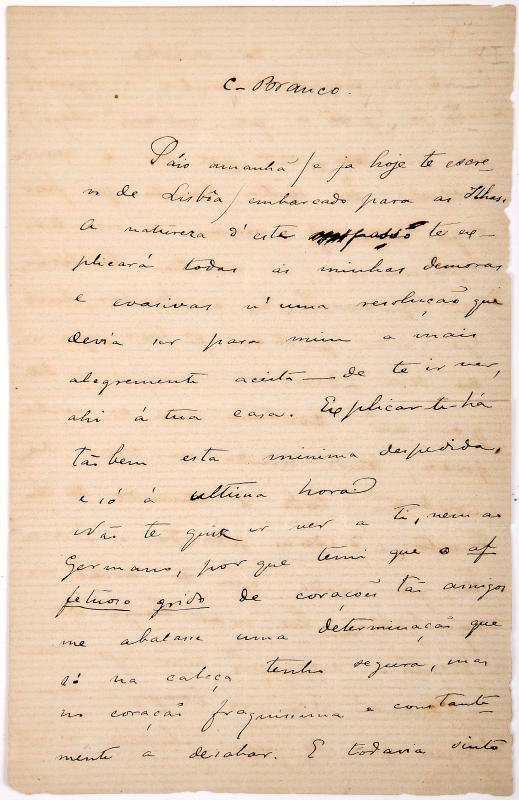 C. Branco.
Páio amanhã (e ja hoje te escre-
vo de Lisbôa) embarcado para as Ilhas.
A natureza d'este passo te ex-
plicará todas as minhas demoras
e evasivas n'uma resolução que
devia ser para mim a mais
alegremente aceita — de te ir ver,
ahi á tua casa. Explicar-te-há
tãobem esta minima despedida
e só á ultima hora.
Não te quiz ir ver a ti, nem ao
Germano, por que temi que o af
fetuoso grido de corações tão amigos
me abalasse uma determinação que
só na cabeça tenho segura, mas
no coração fraquissima e constante-
mente a desabar. E todavia sinto